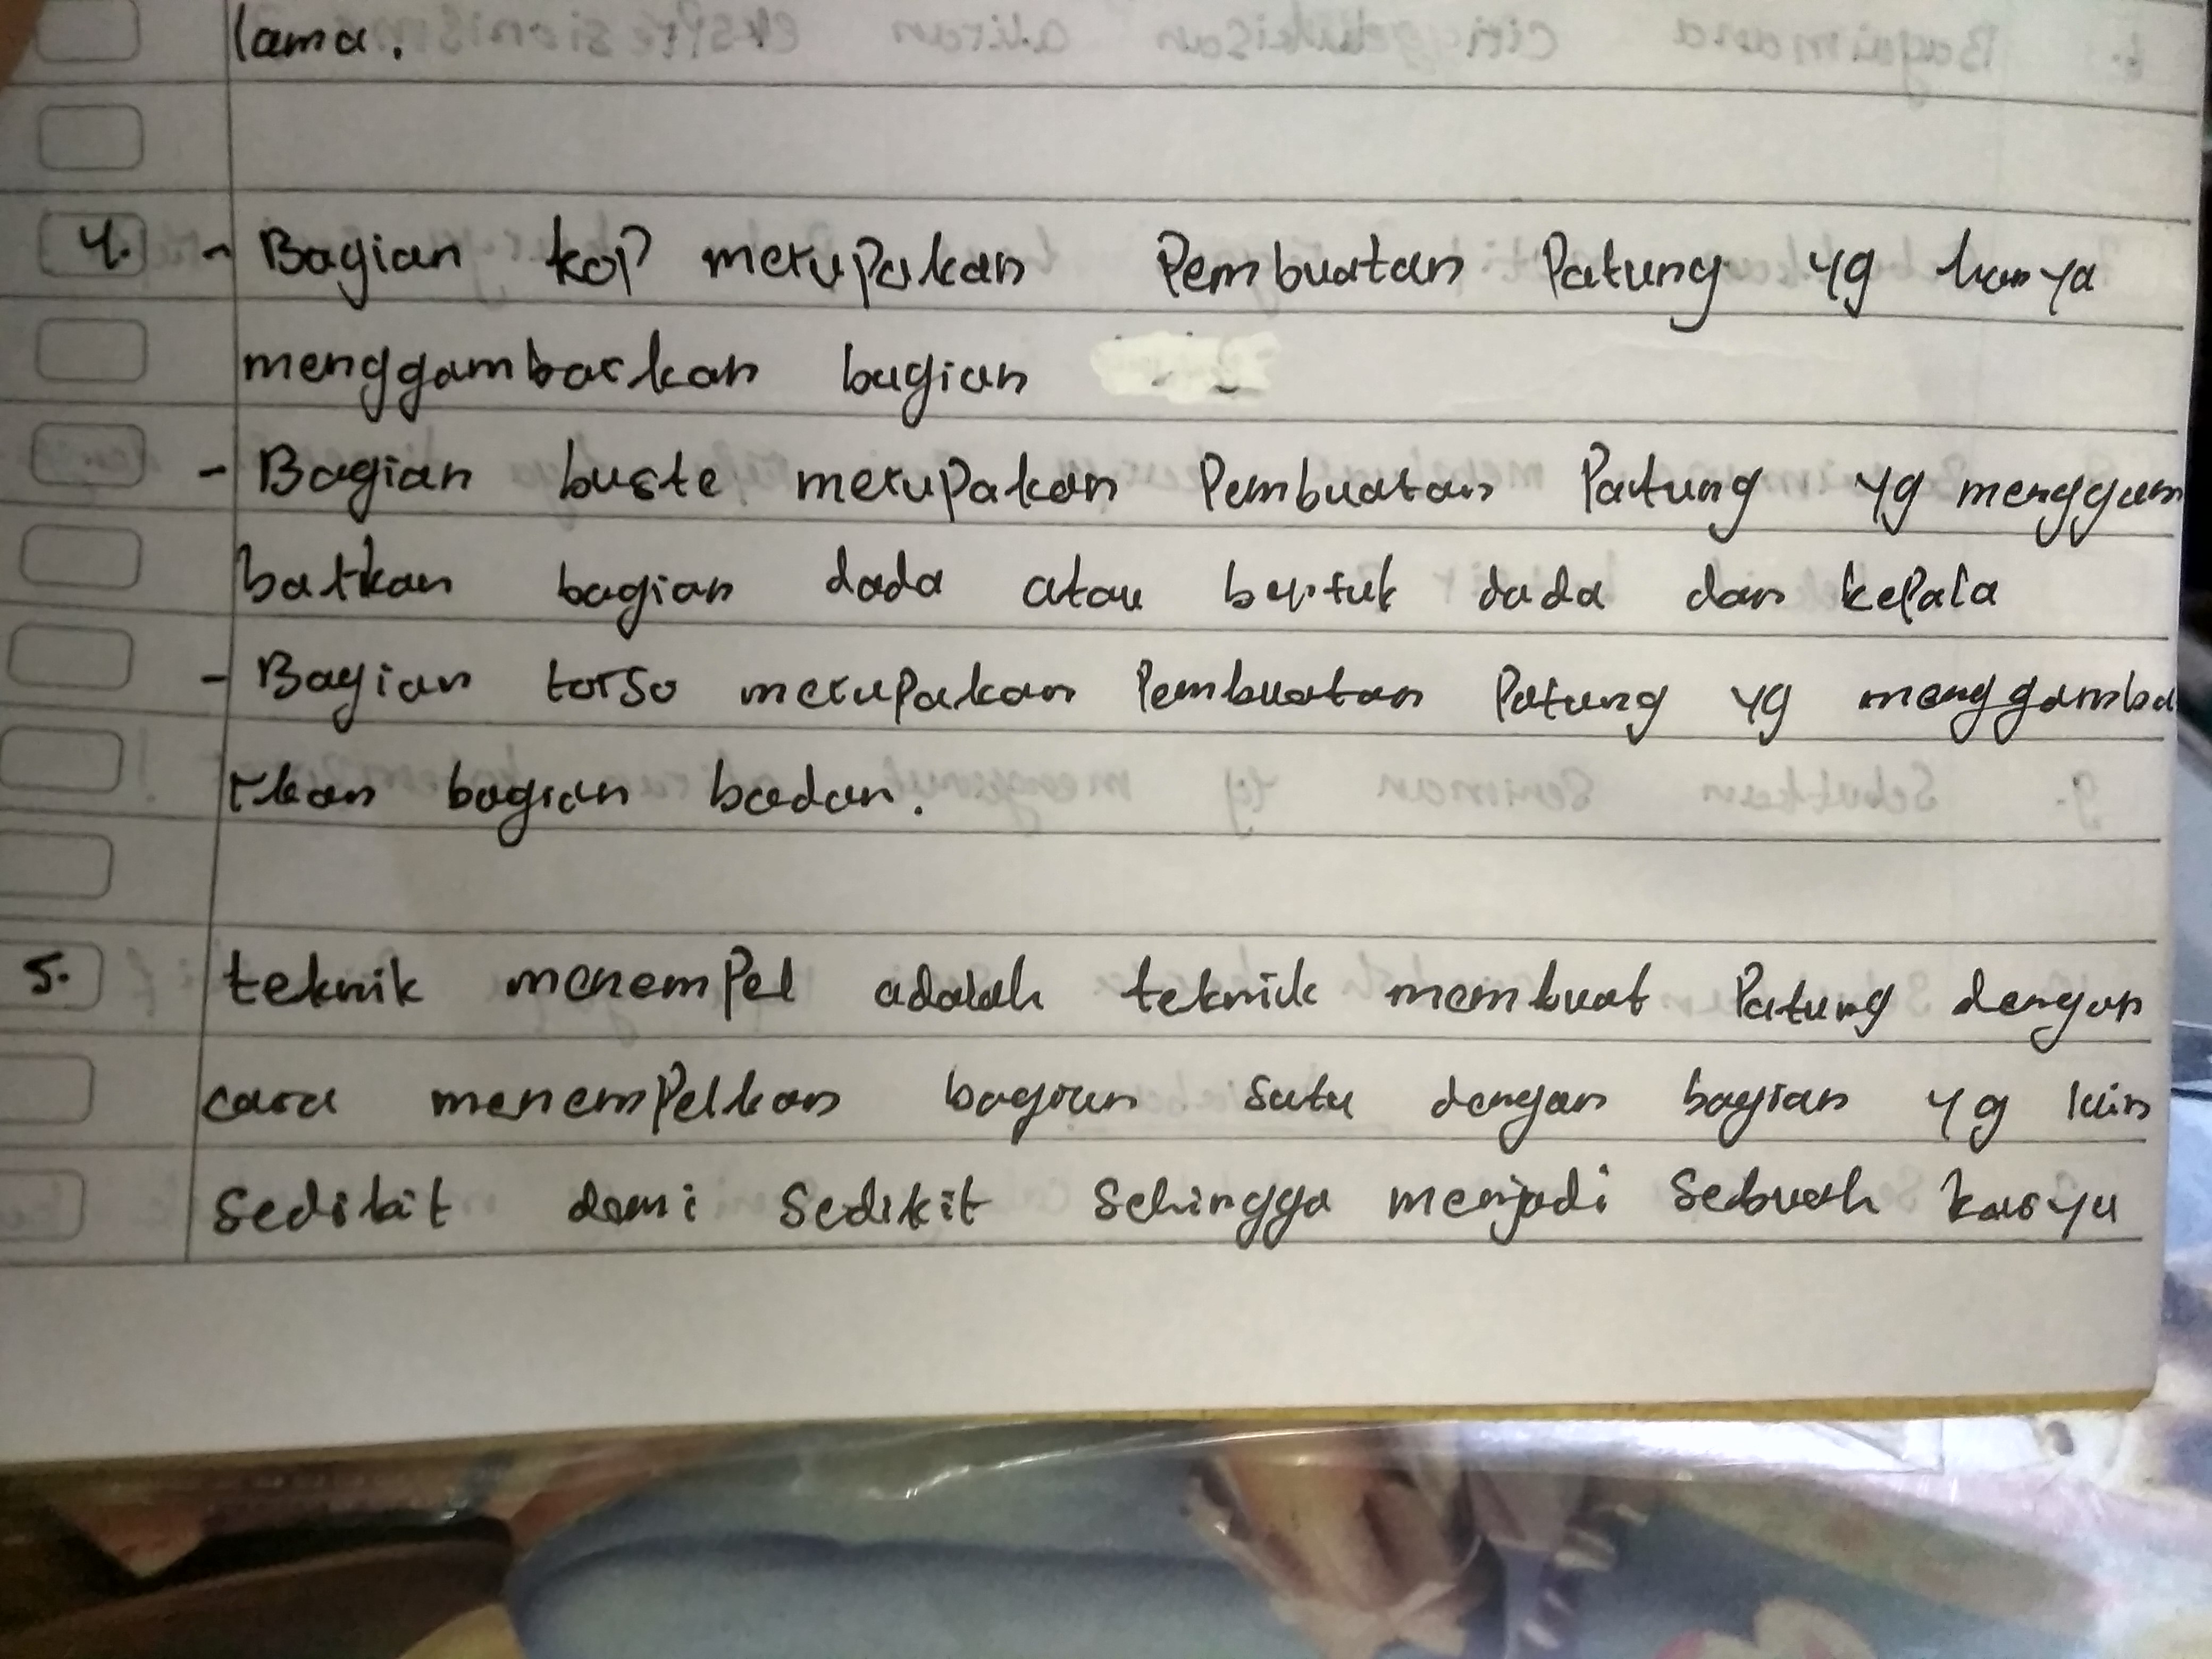 lama.
4. - Bagian kop merupakan Pembuatan Patung yg hanya
menggambarkan bagian
- Bagian buste merupakan Pembuatan Patung yg menggam
barkan bagian dada atau bentuk dada dan kepala
- Bagian torso merupakan Pembuatan Patung yg menggamba
rkan bagian badan.
5. teknik menempel adalah teknik membuat Patung dengan
cara menempelkan bagian satu dengan bagian yg lain
Sedikit demi Sedikit Sehingga menjadi Sebuah karya